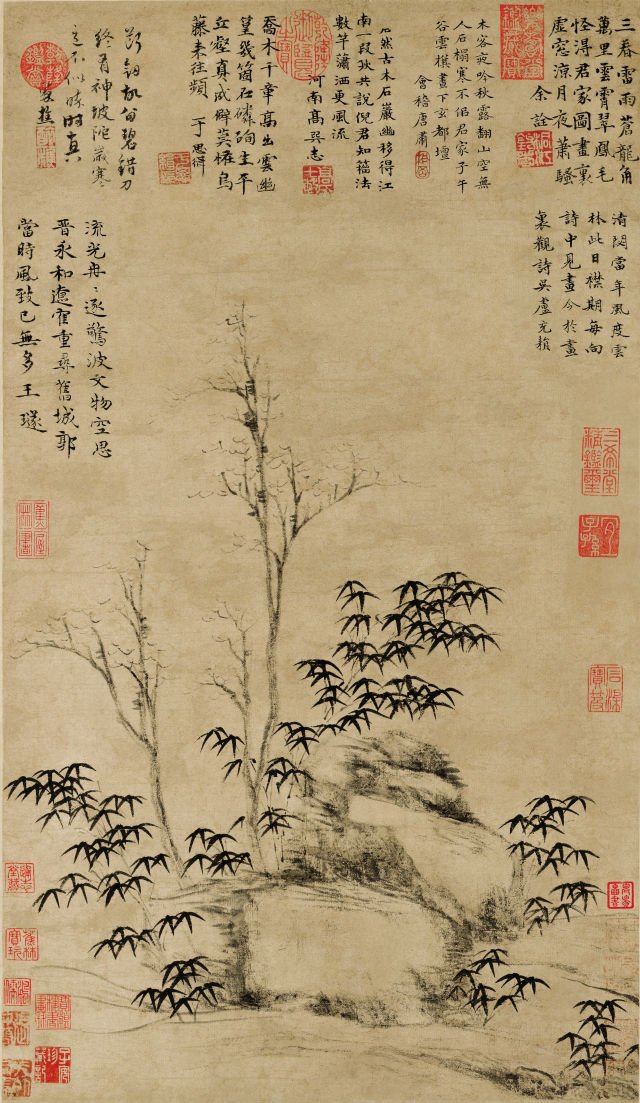 三春雷雨蒼龍角
萬里雲霄翠鳳毛
怪得君家圖畫裏
虛窓涼月夜蕭騷
余詮
木客吟秋露翻山空無
人石榻寒不侶君家子午
谷雲橫晝下玄都壇
會稽唐肅
居然古木石巖幽移得江
南一段秋共說倪君知籀法
數竿瀟洒更風流
河南高巽志
喬木千章高出雲幽
篁幾箇石磷峋主平
丘壑真成癖莫怪烏
藤来往頻 于思緝
碧錯刀
終有神坡陀嚴寒
意不似時真
清閟當年風度雲
林此日襟期每向
詩中見畫今於畫
裏觀詩吳虛充
流光冉〻逐驚波文物空思
晉永和遼重尋舊城郭
當時風致已無多王璲
三希堂精鑑璽
宜子孫